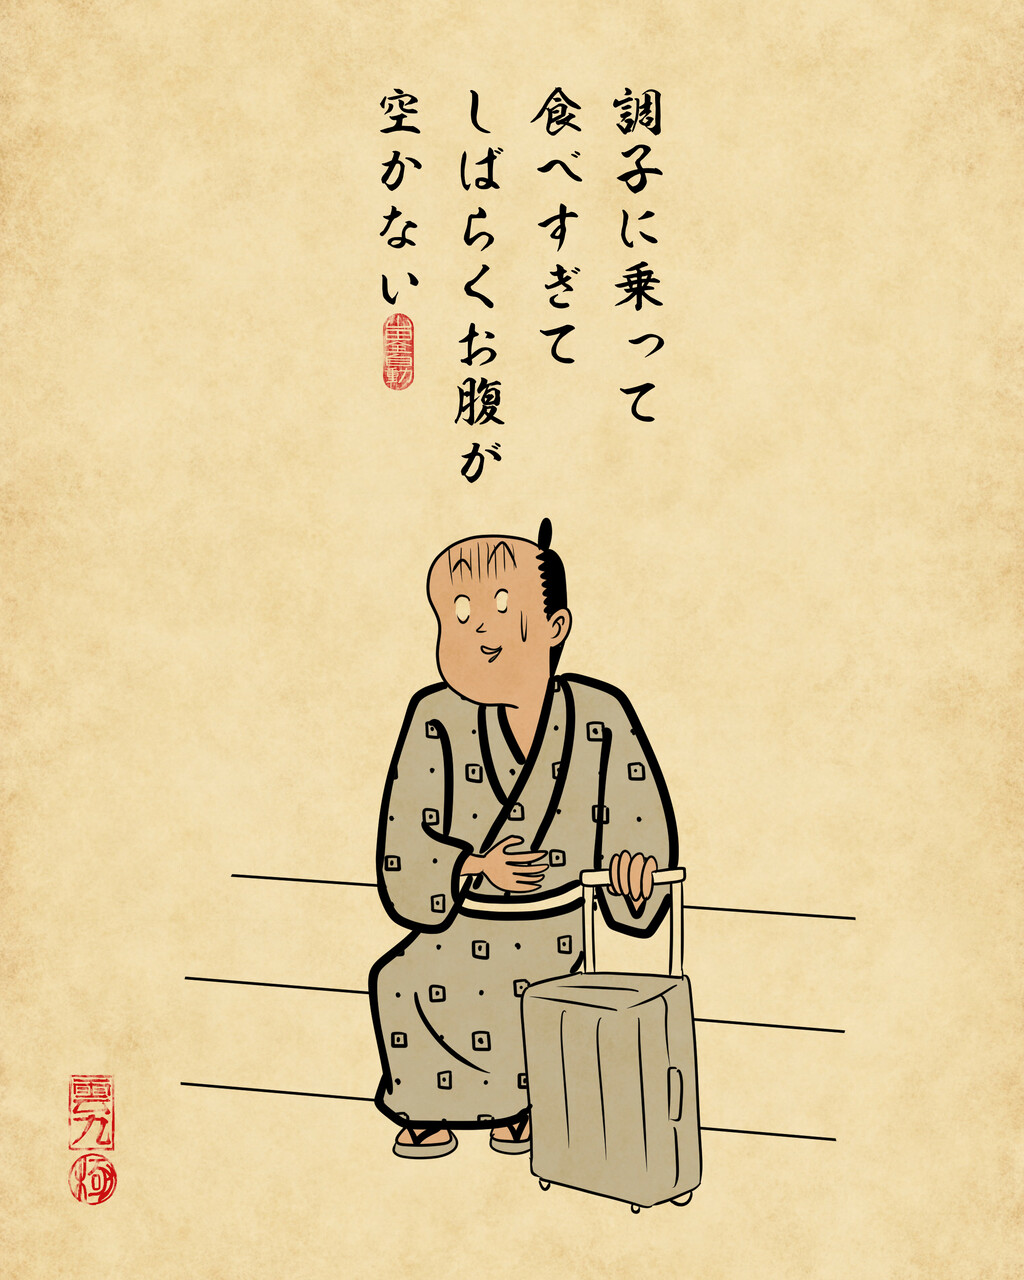 調子に乗って
食べすぎて
しばらくお腹が
空かない
雲九
極